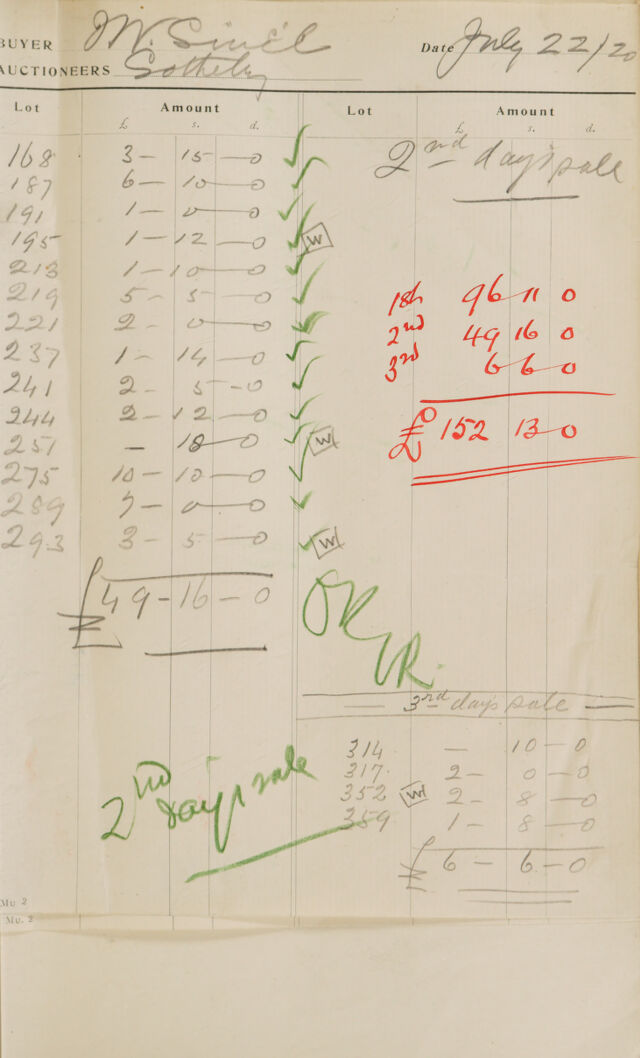 BUYER
Date July 22/20
AUCTIONEERS Sotheby
Lot Amount Lot Amount
£ s. d. £ s. d.
168 3 – 15 – 0 ✓
187 6 – 10 – 0 ✓
191 1 – 0 – 0 ✓
195 1 – 12 – 0 ✓ W
213 1 – 10 – 0 ✓
219 5 – 5 – 0 ✓
221 2 – 0 – 0 ✓
237 1 – 14 – 0 ✓
241 2 – 5 – 0 ✓
244 2 – 12 – 0 ✓
251 – 18 – 0 ✓ W
275 10 – 10 – 0 ✓
289 7 – 0 – 0 ✓
293 3 – 5 – 0 ✓ W
£ 49 – 16 – 0
2nd day's sale
2nd day's sale
96 11 0
2nd 49 16 0
3rd 6 6 0
£ 152 13 0
OK
R.
3rd day's sale
314 – 10 – 0
317 2 – 0 – 0
352 W 2 – 8 – 0
359 1 – 8 – 0
£ 6 – 6 – 0
Mu 2
Mu. 2